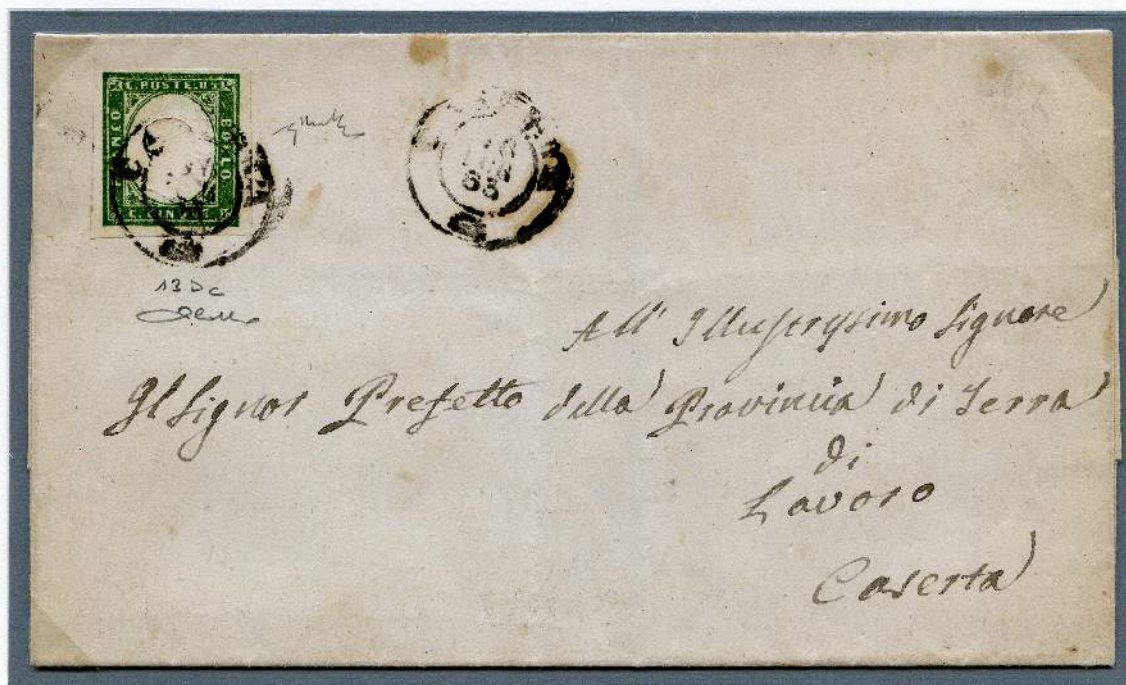 C. POSTE D.
FRANCO
BOLLO
C. CINQUE
LUG
63
13 Dc
All' Illustrissimo Signore
Il Signor Prefetto della Provincia di Terra
di
Lavoro
Caserta